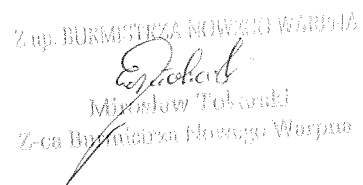 Z up. BURMISTRZA NOWEGO WARPNA
Mirosław Tokarski
Z-ca Burmistrza Nowego Warpna